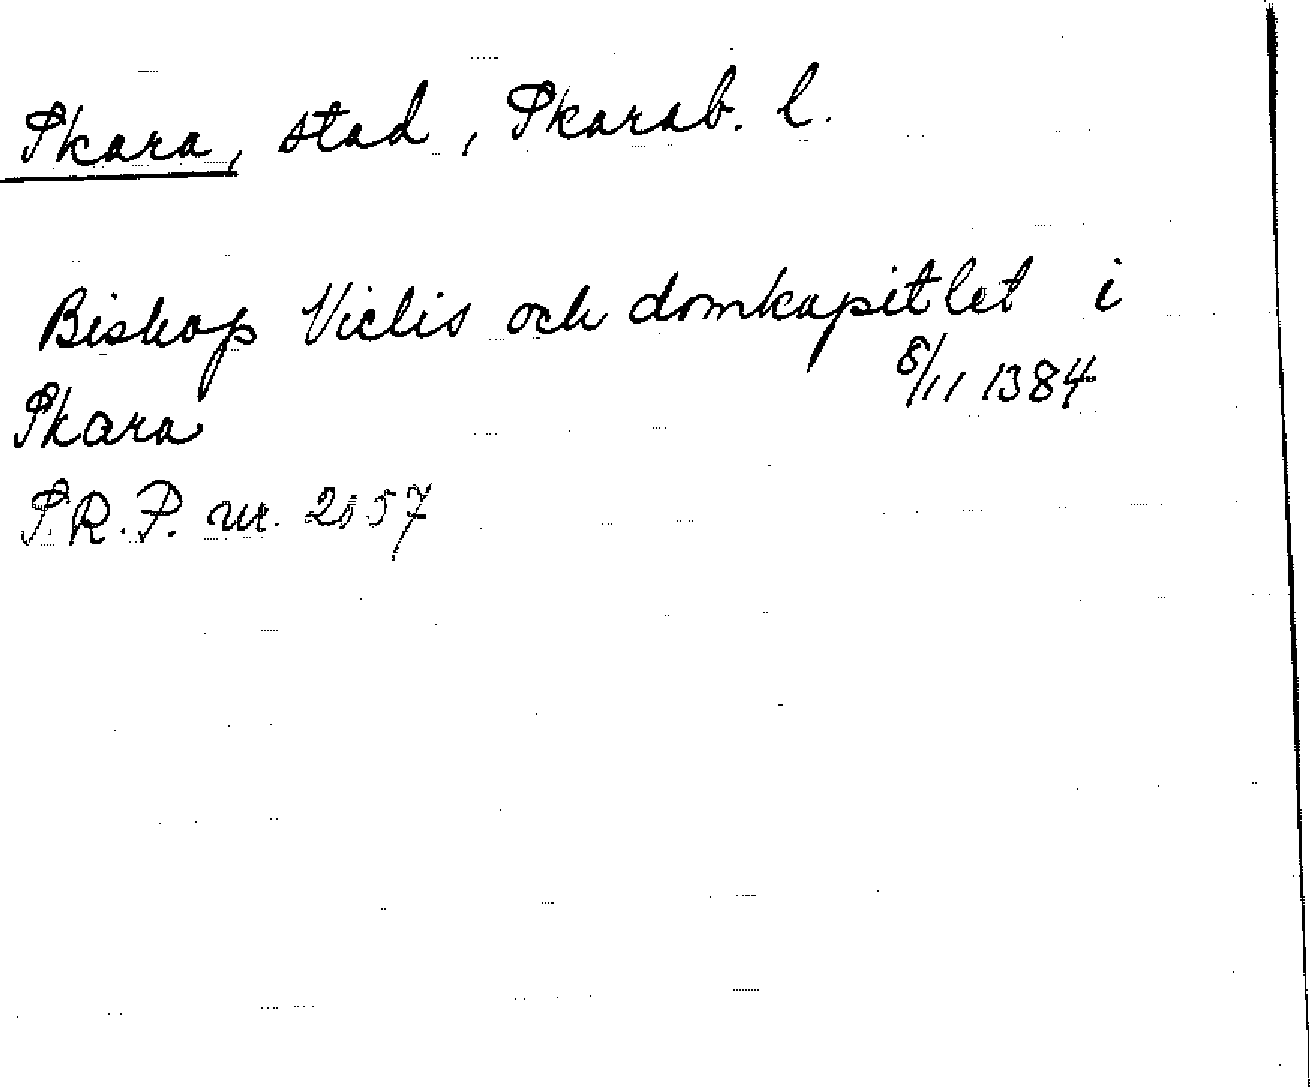 Skara, stad, Skarab. l.
Biskop Viclis och domkapitlet i
8/11 1384
Skara
S.R.P. nr. 2057